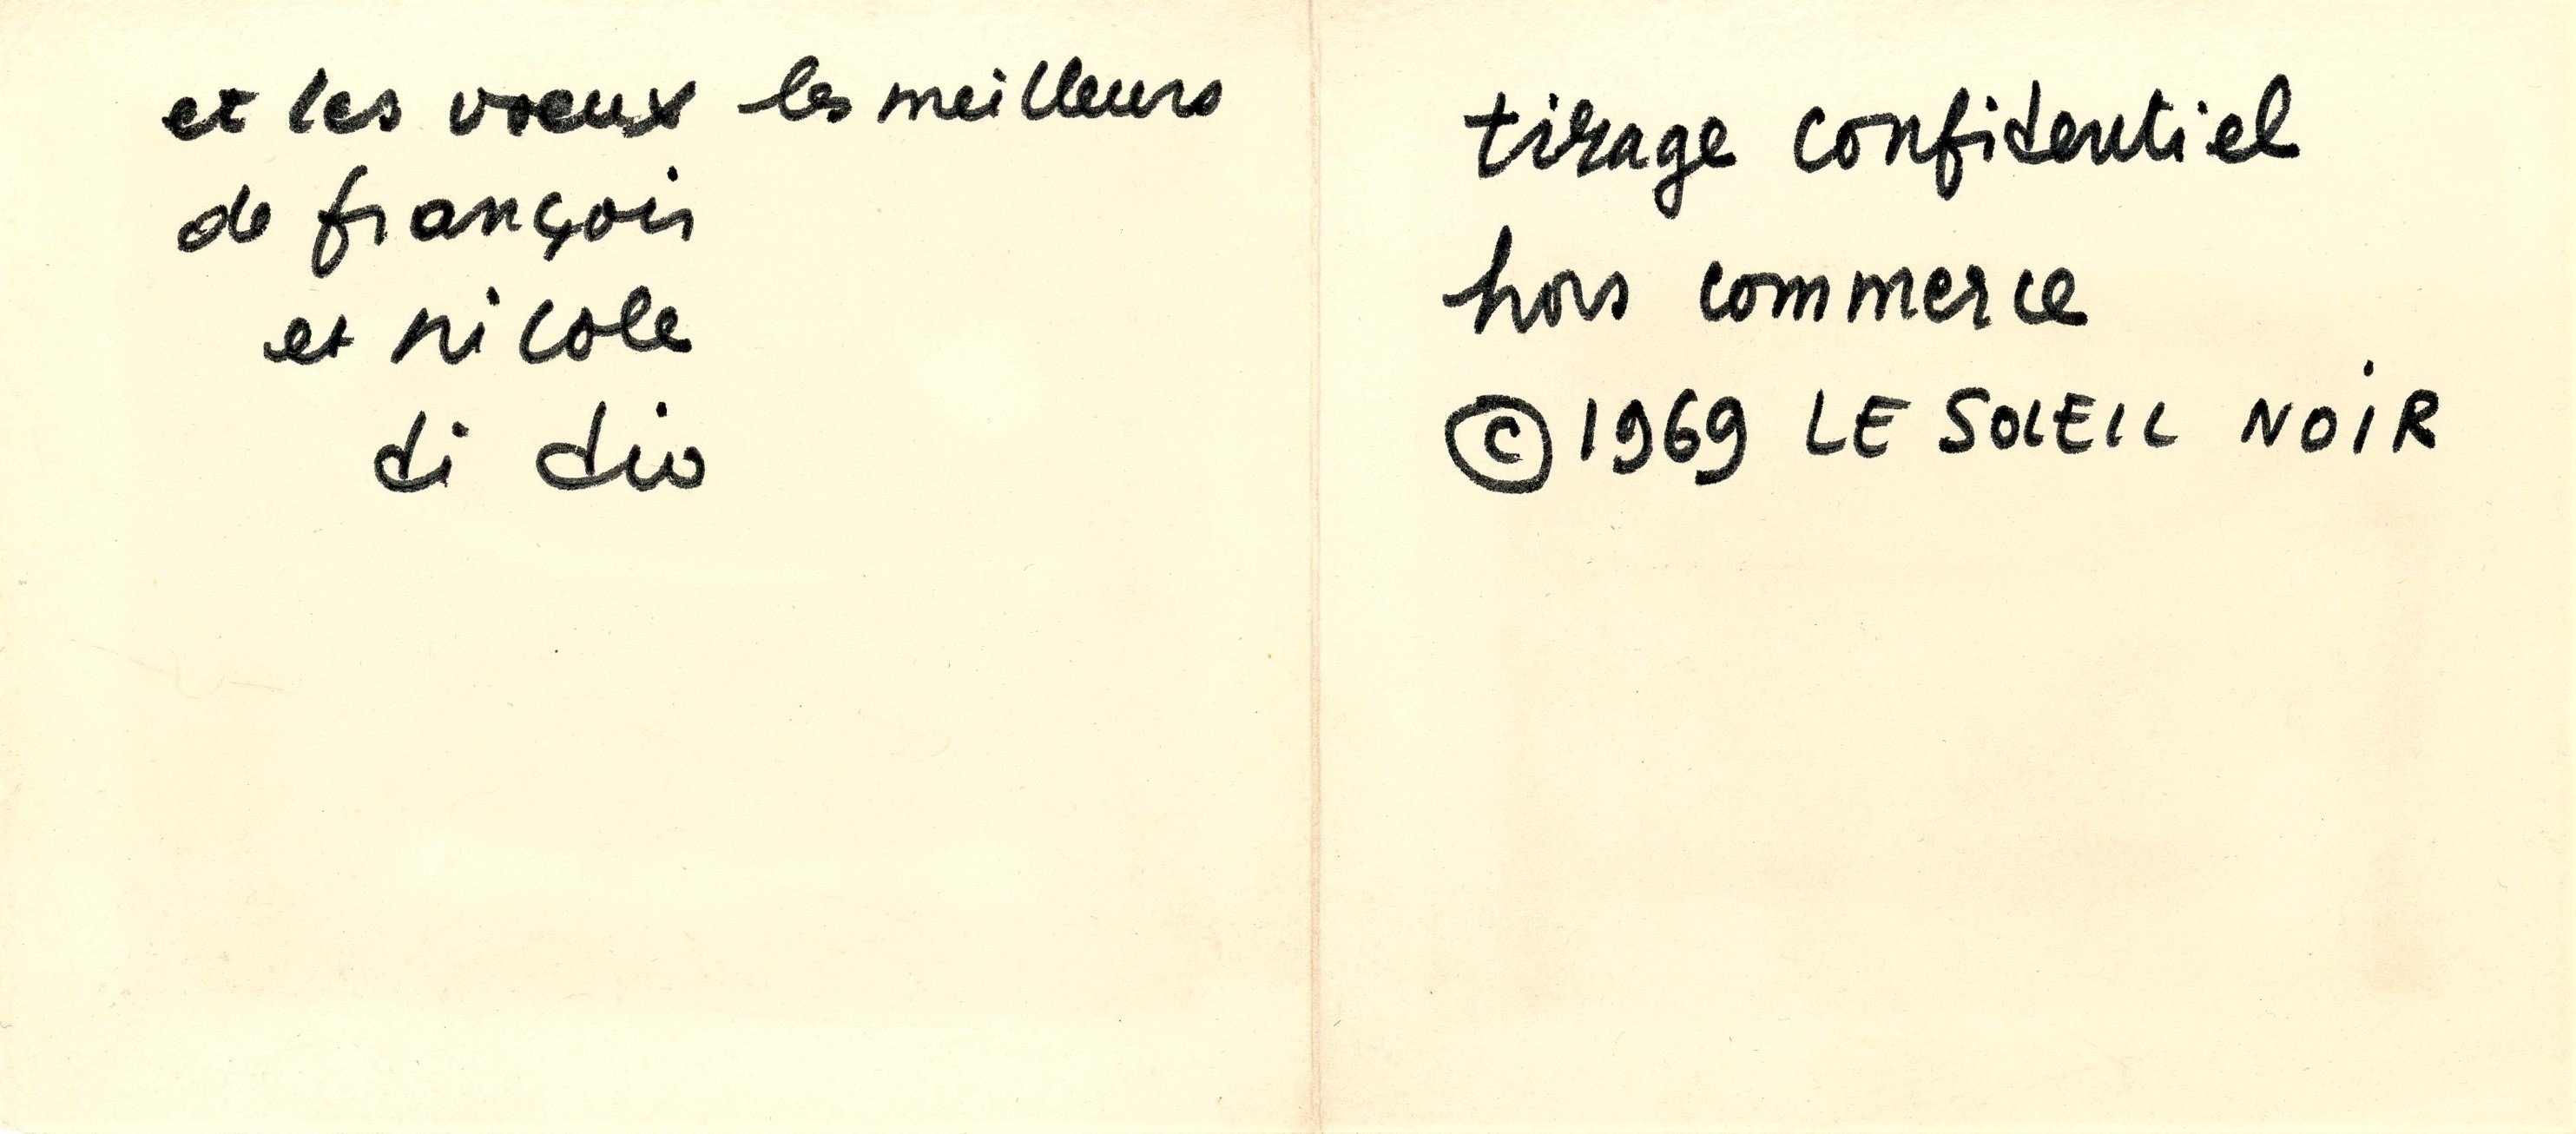 et les vœux les meilleurs
de françois
et nicole
di dio
tirage confidentiel
hors commerce
© 1969 LE SOLEIL NOiR